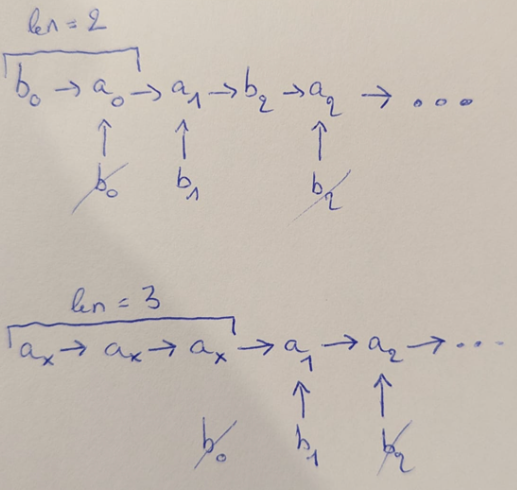 len = 2
b₀ → a₀ → a₁ → b₂ → a₂ → ...
↑ ↑ ↑
b₀ b₁ b₂
len = 3
aₓ → aₓ → aₓ → a₁ → a₂ → ...
↑ ↑
b₀ b₁ b₂